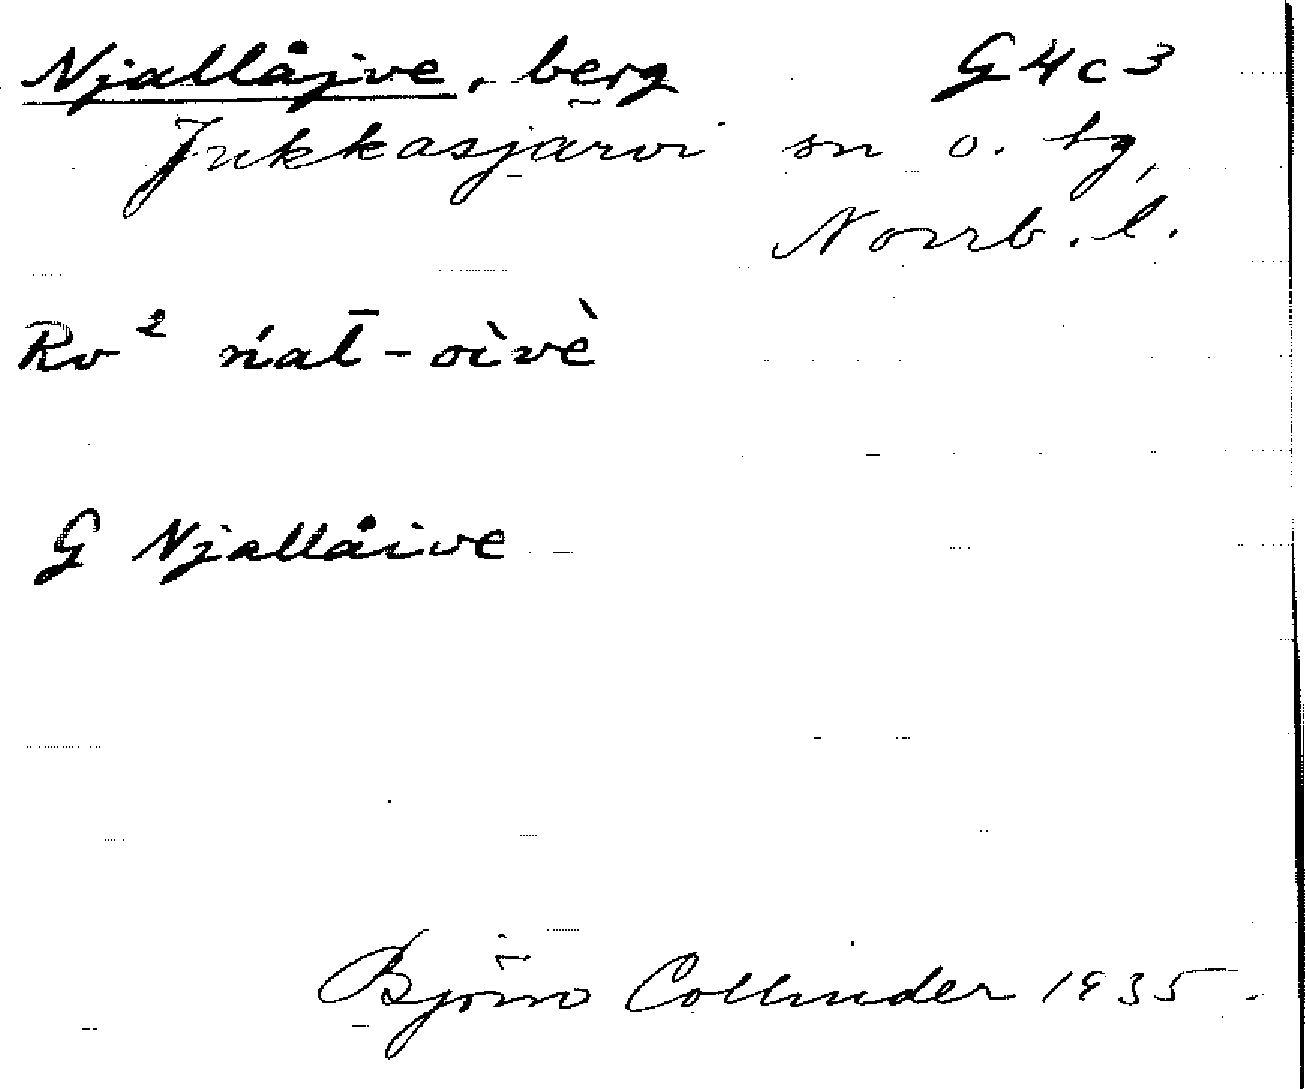 Njallåjve, berg G4c3
Jukkasjärvi sn o. tg,
Norrb. l.
Rv² ńal̄-oìvè
G Njallåive
Björn Collinder 1935.